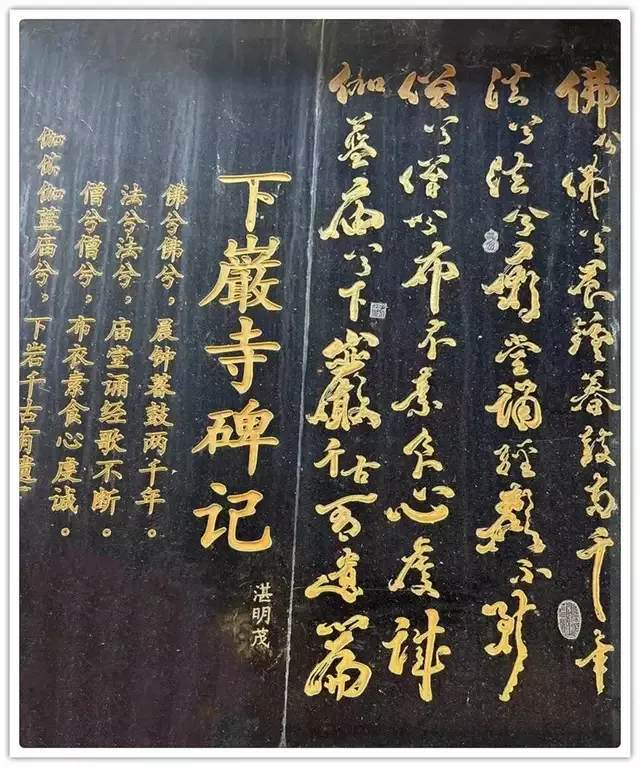 佛兮佛兮晨鐘暮鼓两千年
法兮法兮廟堂誦經歌不斷
僧兮僧兮布衣素食心虔誠
伽蓝庙兮下巖千古有遺篇
下巖寺碑记
湛明茂
佛兮佛兮，晨钟暮鼓两千年。
法兮法兮，庙堂诵经歌不断。
僧兮僧兮，布衣素食心虔诚。
伽蓝庙兮，下岩千古有遗